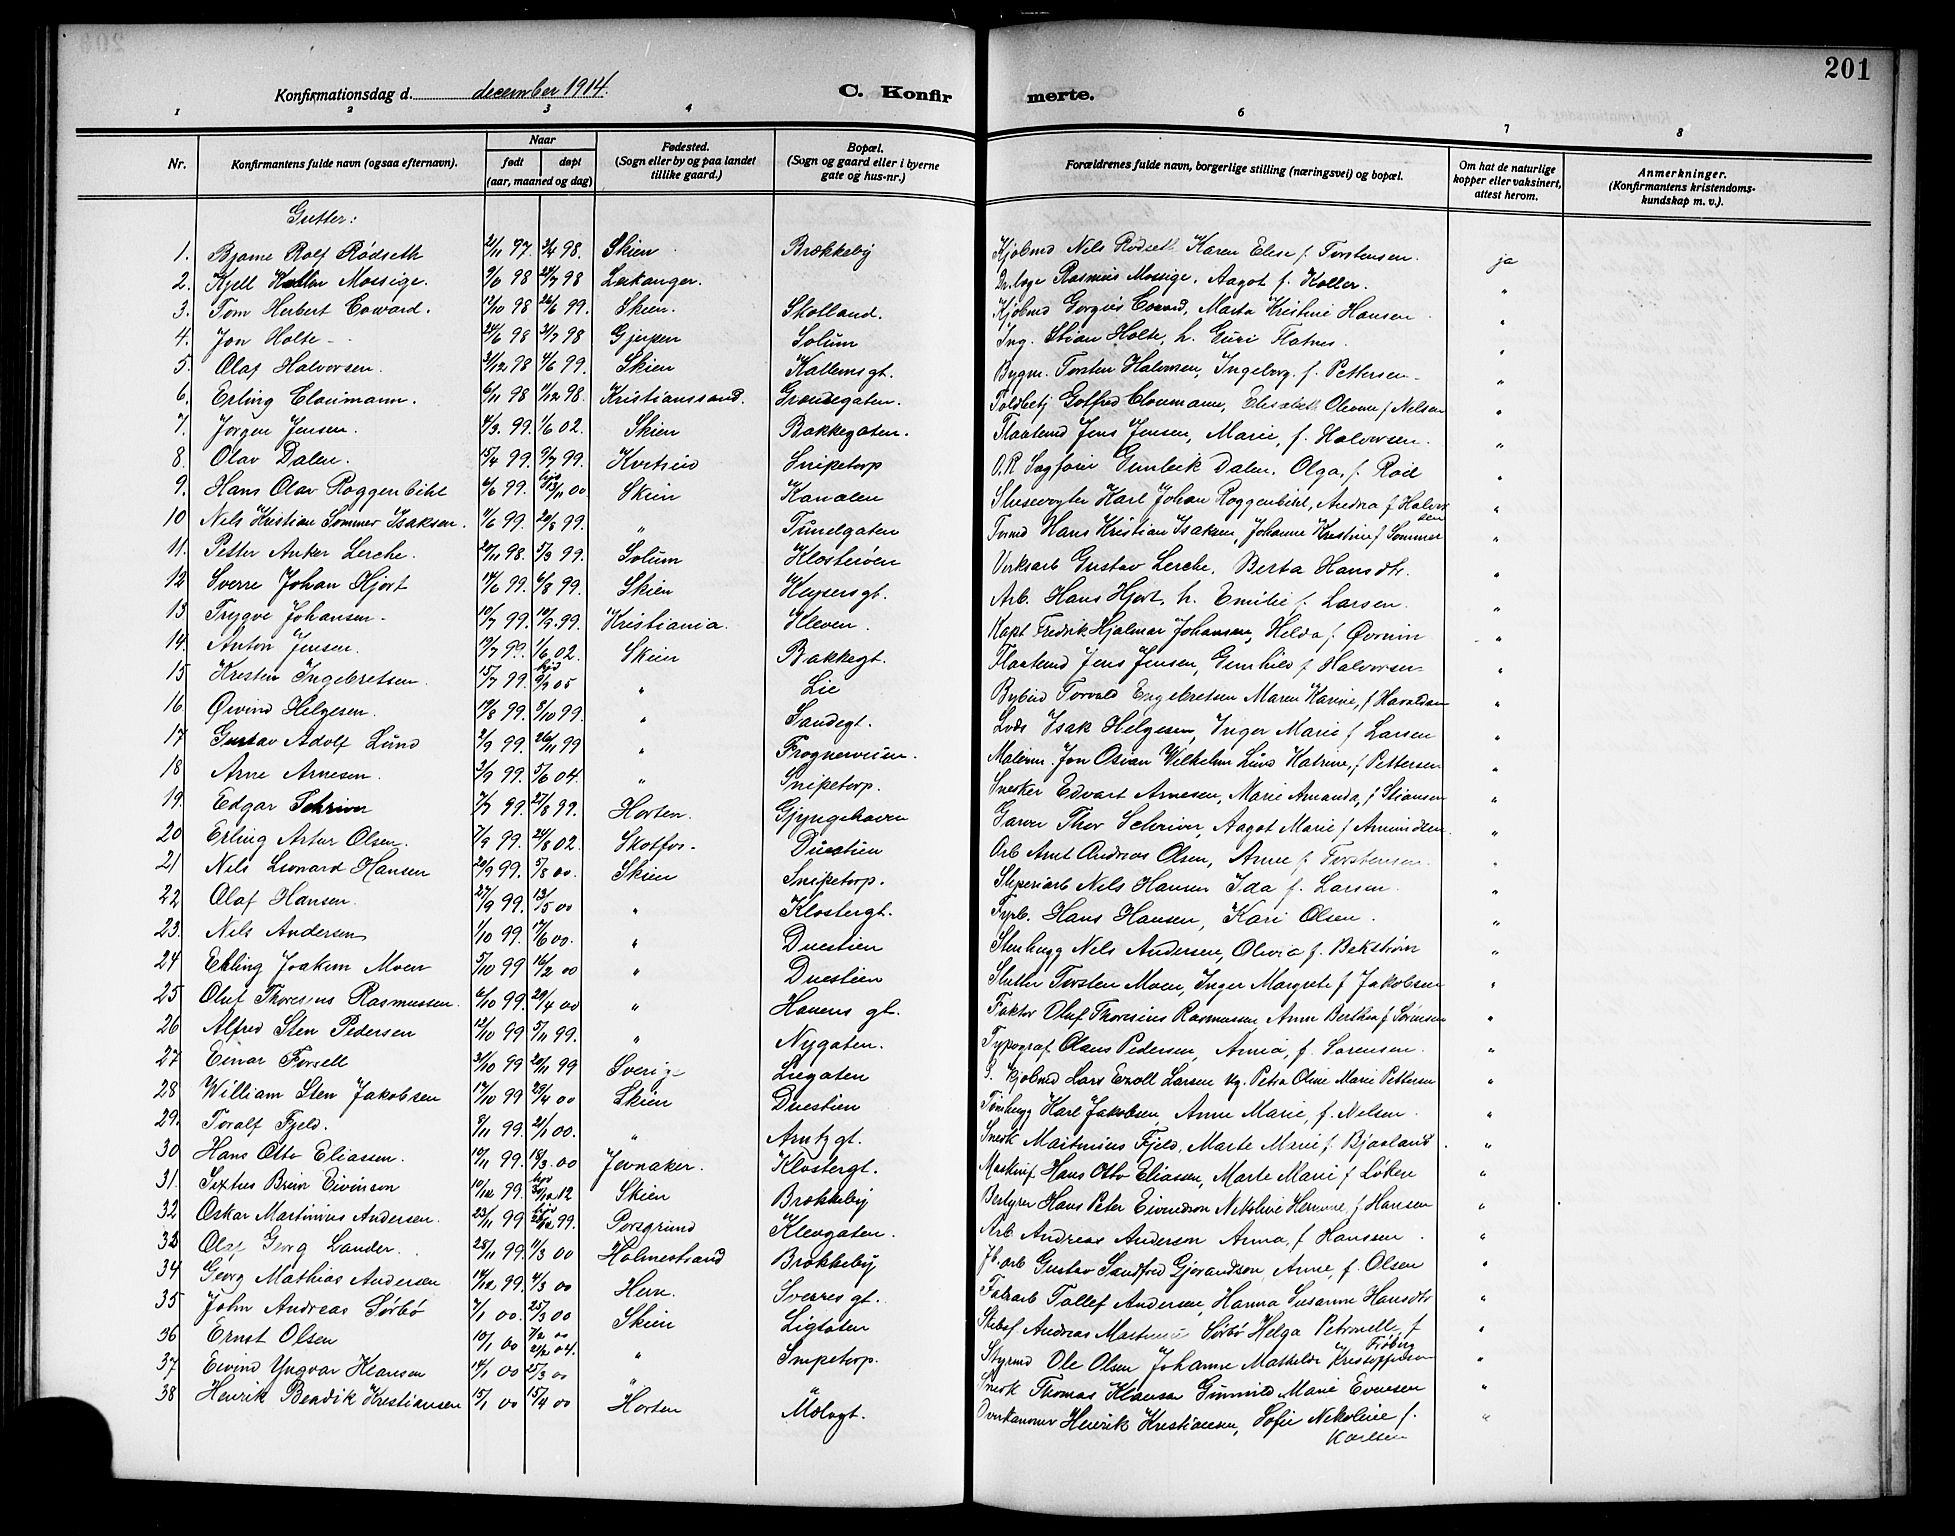 201
Konfirmationsdag d. december 1914.
C. Konfir merte.
1 2 3 4 6 7 8
Nr. Konfirmantens fulde navn (ogsaa efternavn). Naar født døpt (aar, maaned og dag) Fødested. (Sogn eller by og paa landet tillike gaard.) Bopæl. (Sogn og gaard eller i byerne gate og hus-nr.) Forældrenes fulde navn, borgerlige stilling (næringsvei) og bopæl. Om hat de naturlige kopper eller vaksinert, attest herom. Anmerkninger. (Konfirmantens kristendomskundskap m. v.).
Gutter:
1. Bjarne Rolf Rødseth 2/11 97. 3/4 98. Skien Brækkeby Kjøbmd Nels Rødseth Karen Elise f. Torstensen. ja
2. Kjell Koller Mossige. 9/6 98 24/7 98 Leikanger. Dr. læge Rasmus Mossige, Aagot f. Koller. "
3. Tom Herbert Coward. 12/10 98 26/6 99. Skien. Skotland. Kjøbmd Gorgius Coward, Marta Kristine Hansen "
4. Jon Holte 24/6 98 3/7 98 Gjerpen Solum Ing. Stian Holte, h. Guri Flatnes. "
5. Olaf Halvorsen. 3/12 98 4/6 99. Skien Kallemsgt. Bygm. Torsten Halvorsen, Ingeborg f. Pettersen. "
6. Erling Cloumann. 6/11 98 11/12 98. Kristianssand. Grændsegaten. Toldbetj Gotfred Cloumann, Elisabeth Olevine f Nelsen "
7. Jørgen Jensen. 4/3. 99. 1/6 02. Skien Bakkegaten. Flaatemd Jens Jensen, Marie, f. Halvorsen. "
8. Olav Dalen. 15/4 99. 9/7 99. Kvitseid Snipetorp O.R. Sagfører Gunleik Dalen, Olga, f. Roll "
9. Hans Olav Roggenbihl 6/6 99. hjd 13/11 00 Skien Kanalen Slusevogter Karl Johan Roggenbihl, Andrea f Halvorsen "
10 Nels Kristian Sommer Isaksen. 11/6 99. 20/8 99. " Tunelgaten Tomd Hans Kristian Isaksen, Johanne Kristine f Sommer "
11. Petter Anker Lerche. 20/11 98. 5/3 99. Solum Klosterøen Verksarb Gustav Lerche, Berta Hansdtr. "
12 Sverre Johan Hjort 14/6 99. 6/8 99. Skien Keysersgt. Arb. Hans Hjort, h. Emilie f. Larsen. "
13. Trygve Johansen. 10/7 99. 10/9. 99. Kristiania. Kleven. Kapt Fredrik Hjalmar Johansen, Hilda f. Øvrum "
14. Anton Jensen. 19/7 99. 1/6 02. Skien Bakkegt. Flaatemd Jens Jensen, Gunhild f Halvorsen "
15 Kresten Ingebretsen. 15/7 99. hjd 9/9 05 " Lie Bybud Torvald Engebretsen Maren Karine, f Haraldsen "
16. Øivind Helgesen. 19/8 99. 8/10 99. " Sandegt. Lods Isak Helgesen, Inger Marie f Larsen "
17 Gustav Adolf Lund 2/9 99. 26/11 99 " Frognerveien. Malerm. Jon Osian Wilhelm Lund Katrine, f Pettersen "
18 Arne Arnesen. 3/9 99. 5/6 04. " Snipetorp. Snekker Edvart Arnesen, Marie Amanda, f Stiansen "
19. Edgar Schriver 7/7 99. 27/8 99. Horten. Gjyngehaven Garver Thor Schriver, Aagot Marie f Amundsen. "
20 Erling Artur Olsen. 7/9 99. 24/8 02. Skotfos. Duestien Arb Arnt Andreas Olsen, Anne f. Torstensen. "
21 Nels Leonard Hansen 20/9 99. 5/8 00. Skien Snipetorp. Sliperiarb Nels Hansen Ida f. Larsen. "
22 Olaf Hansen. 27/9 99. 13/5 00 " Klostergt. Fyrb. Hans Hansen, Kari Olsen. "
23. Nels Andersen 1/10 99. 17/6 00. " Duestien Stenhugg Nels Andersen, Olivia f. Bekstrøm "
24 Erling Joakim Moen 5/10 99 16/2 00 " Duestien Slutter Torsten Moen, Inger Margrete f Jakobsen "
25 Oluf Thoresius Rasmussen. 6/10 99. 29/4 00 " Havens gt. Faktor Oluf Thoresius Rasmussen, Anne Berthea f Sørensen "
26 Alfred Sten Pedersen 12/10 99 5/11 99. " Nygaten. Typograf Olaus Pedersen, Anna, f. Sørensen. "
27 Einar Forsell 31/10 99 20/11 99 Sverige Liegaten S. Kjøbmd Lars Ezoll Larsen ug. Petra Oline Marie Pettersen "
28 William Sten Jakobsen 14/10 99 29/4 00 Skien Duestien Tømhugg Karl Jakobsen, Anne Marie, f. Nelsen. "
29. Toralf Fjeld. 8/11 99. 21/1 00. " Arntzgt. Snedk Martinius Fjeld, Marte Marie f. Bjaaland. "
30 Hans Otto Eliassen. 10/11 99. 18/3. 00 Jevnaker. Klostergt. Maskinf. Hans Otto Eliassen, Marte Marie f Løken "
31. Sixtus Brun Eivinson 10/12 99. hjd 30/12 12 Skien Brækkeby Bestyrer Hans Peter Eivindson Nekoline Hermine f Hansen "
32 Oskar Martinius Andersen. 23/11 99 hjd 25/12 99. Porsgrund Klevgaten. Arb Andreas Andersen Anna, f Hanssen. "
33 Olaf Georg Lander. 25/11 99. 11/3 00 Holmestrand Brækkeby Jb. arb Gustav Sandfred Gjorandson, Anne, f. Olsen "
34 Georg Mathias Andersen 14/12 99. 4/3 00 Hem. Sverresgt. Fabarb Tollef Andersen, Hanna Susanne Hansdtr "
35 John Andreas Sørbø 7/1 00. 25/3 00 Skien Ligtoten Skibsf Andreas Martinius Sørbø Helga Petronelle f Frøberg "
36 Ernst Olsen 10/1 00 7/2 00 21/2 04. " Snipetorp. Styrmd Ole Olsen Johanne Mathilde Kristoffersen "
37 Eivind Yngvar Klausen 14/1 00 25/3 00 " " Snedk Thomas Klausen Gunnild Marie Evensen "
38 Henrik Bendik Kristiansen 15/1 00 15/4 00 Horten Mølegt. Overkanoner Henrik Kristiansen, Sofie Nekoline f. Karlsen "